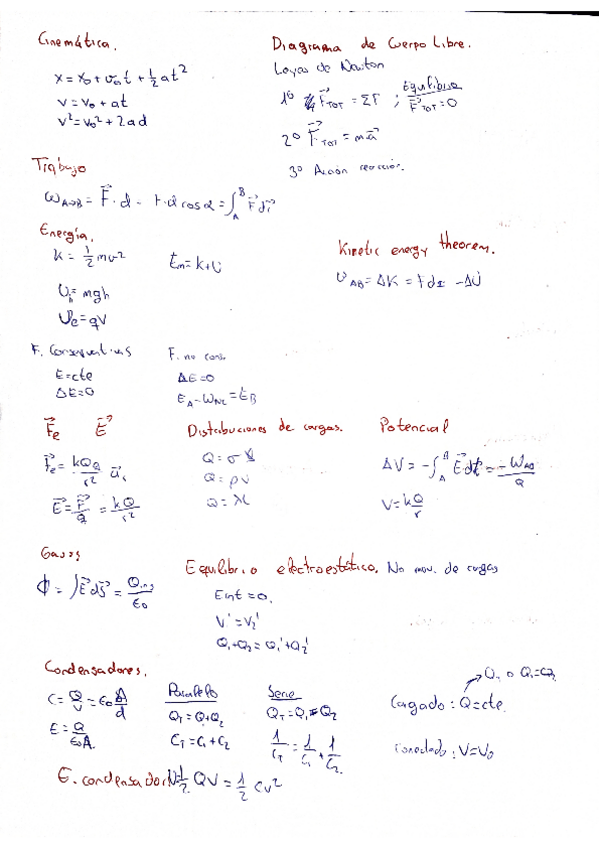 Cinemática.
x = x₀ + v₀t + ½ at²
v = v₀ + at
v² = v₀² + 2ad
Diagrama de Cuerpo Libre.
Leyes de Newton
1º F⃗_TOT = ΣF⃗ ; Equilibrio F⃗_TOT = 0
2º F⃗_TOT = ma⃗
3º Acción reacción.
Trabajo
W_A→B = F⃗ · d = F·d cos α = ∫_A^B F⃗ dr⃗
Energía.
K = ½ mv²
Em = K + U
U = mgh
Ue = qV
Kinetic energy theorem.
W_AB = ΔK = F dx = -ΔU
F. Conservativas
E = cte
ΔE = 0
F. no cons.
ΔE = 0
E_A - W_NC = E_B
F⃗e E⃗
F⃗e = kQq/r² u⃗r
E⃗ = F⃗/q = kQ/r²
Distribuciones de cargas.
Q = σ
Q = ρV
Q = λl
Potencial
ΔV = -∫_A^B E⃗ dr⃗ = -W_AB/q
V = kQ/r
Gauss
Φ = ∫E⃗ ds⃗ = Qins/ε₀
Equilibrio electroestático. No mov. de cargas
Eint = 0.
V₁' = V₂'
Q₁ + Q₂ = Q₁' + Q₂'
Condensadores.
C = Q/V = ε₀ A/d
E = Q/ε₀A
Paralelo
Q_T = Q₁ + Q₂
C_T = C₁ + C₂
Serie
Q_T = Q₁ = Q₂
1/C_T = 1/C₁ + 1/C₂
Q₁ = Q₂
Cargado : Q = cte.
Conectado : V = V₀
E. condensador ½ QV = ½ CV²